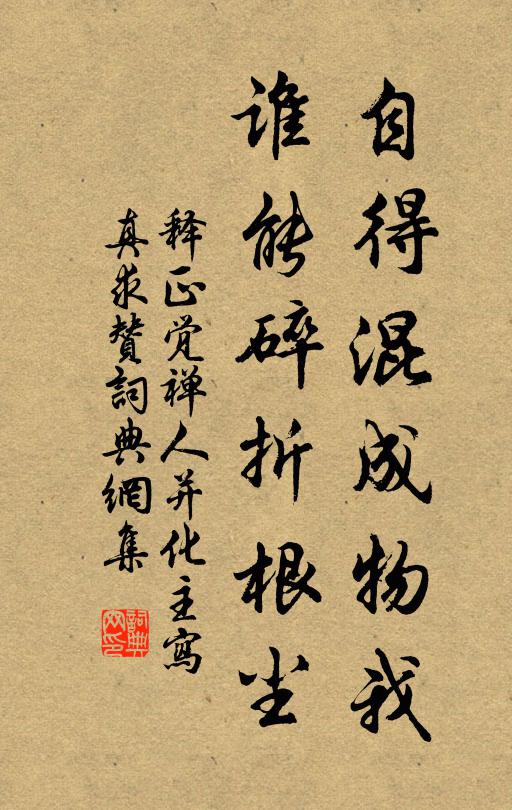 自得混成物我
谁能碎折根尘
释正觉禅人并化主寫
真求賛詞典網集
詞典
网印